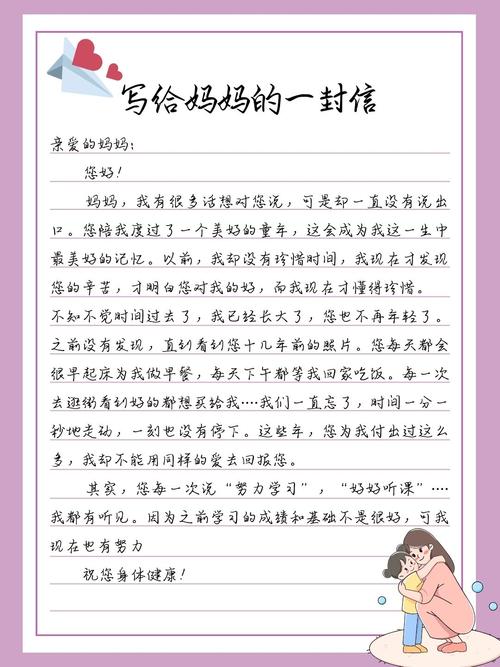 写给妈妈的一封信
亲爱的妈妈：
您好！
妈妈，我有很多话想对您说，可是却一直没有说出
口。您陪我度过了一个美好的童年，这会成为我这一生中
最美好的记忆。以前，我却没有珍惜时间，我现在才发现
您的辛苦，才明白您对我的好，而我现在才懂得珍惜。
不知不觉时间过去了，我已经长大了，您也不再年轻了。
之前没有发现，直到看到您十几年前的照片。您每天都会
很早起床为我做早餐，每天下午都等我回家吃饭。每一次
去逛街看到好的都想买给我····我们一直忘了，时间一分一
秒地走动，一刻也没有停下。这些年，您为我付出过这么
多，我却不能用同样的爱去回报您。
其实，您每一次说“努力学习”，“好好听课”····
我都有听见。因为之前学习的成绩和基础不是很好，可我
现在也有努力
祝您身体健康！